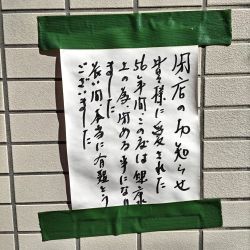 閉店のお知らせ
皆様に愛された
56年間、この度は健康
上の為、閉める事になり
ました
長い間、本当に有難とう
ございました